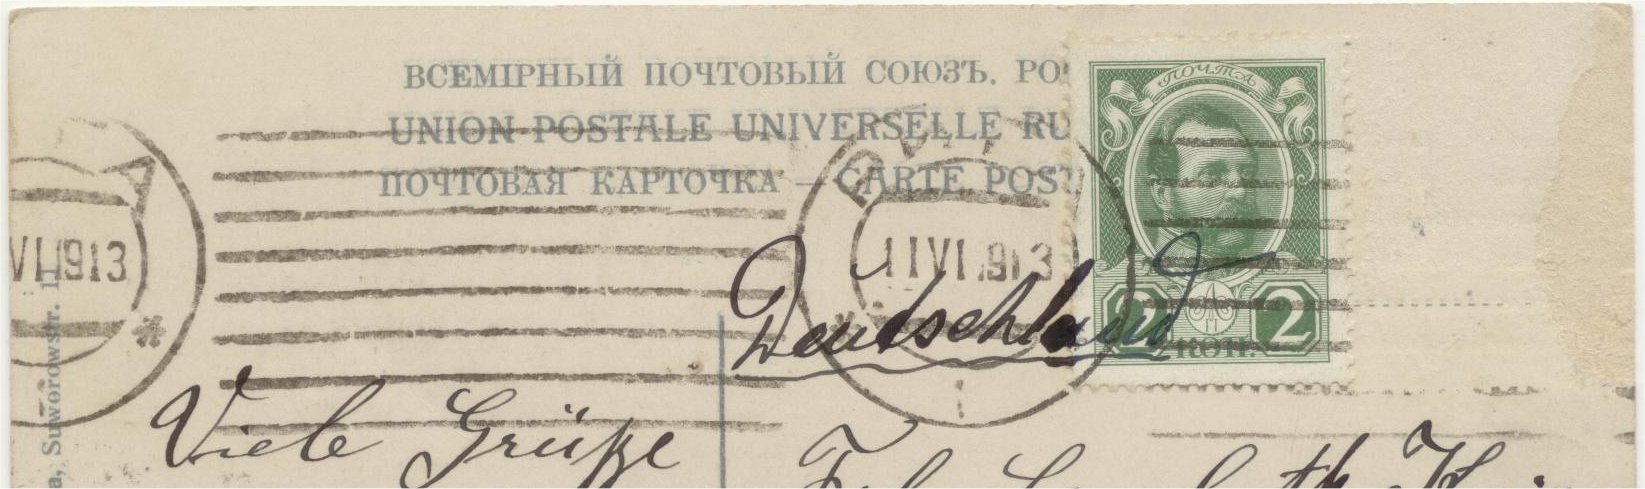 ВСЕМІРНЫЙ ПОЧТОВЫЙ СОЮЗЪ. РО
UNION POSTALE UNIVERSELLE RU
ПОЧТОВАЯ КАРТОЧКА — CARTE POST
ПОЧТА
2 КОП. 2
А
VI 1913
11 VI 1913
1
Deutschland
Viele Grüße
a, Suworowstr. 11